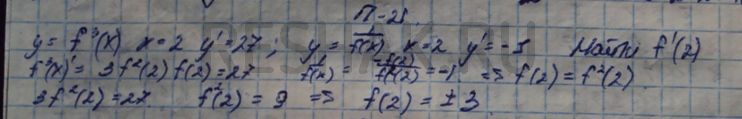 П-25.
y = f³(x) x=2 y'=27; y = 1/f(x) x=2 y'=-1 Найти f'(2)
f³(x)' = 3f²(2) f(2) = 27 1/f(x) = -f(2)/f²(2) = -1 => f(2) = f²(2)
3f²(2) = 27 f²(2) = 9 => f(2) = ±3